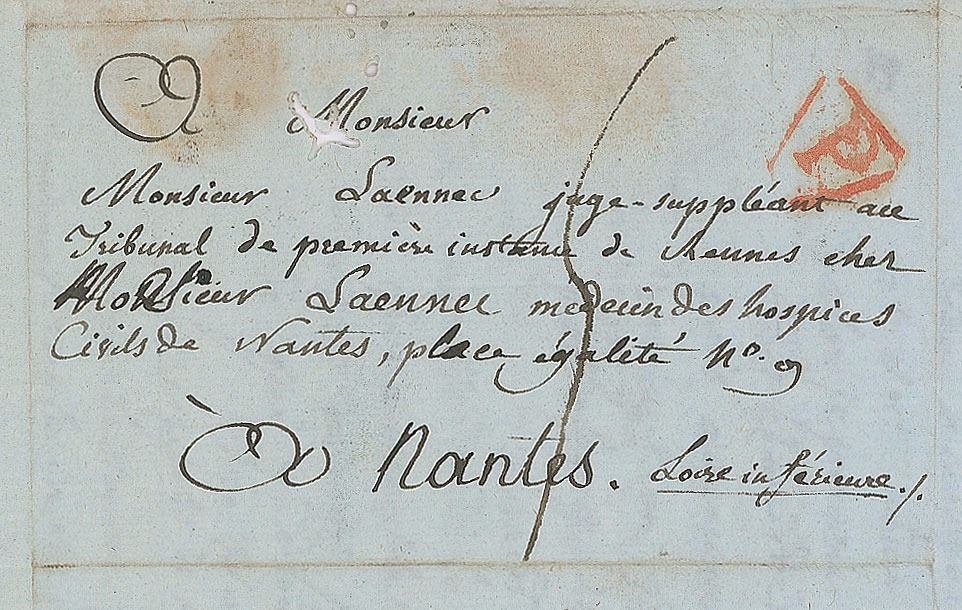 A Monsieur
Monsieur Laennec juge-suppléant au
Tribunal de première instance de Rennes chez
Monsieur Laennec medecin des hospices
Civils de Nantes, place égalité N.o 9
À Nantes. Loire inférieure ./.
P